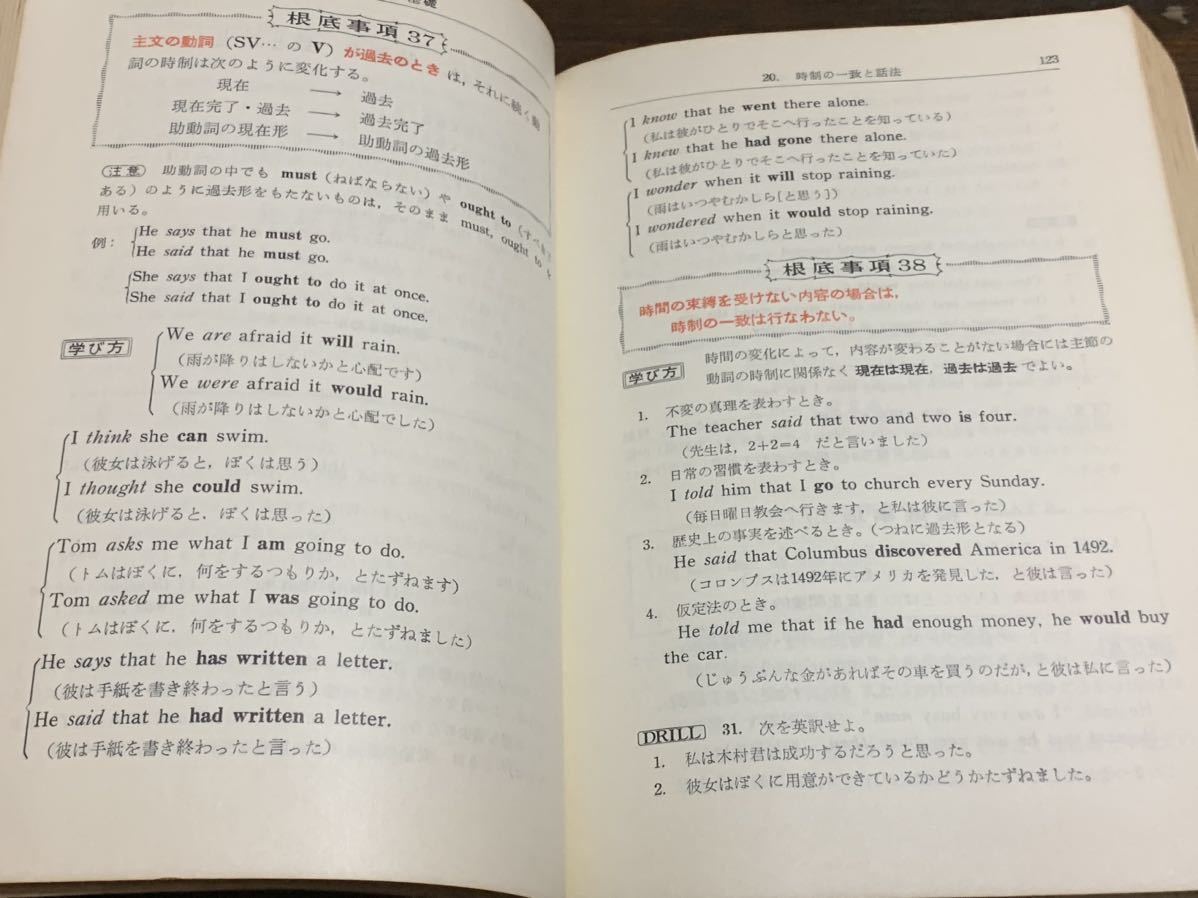 礎
根底事項37
主文の動詞 (SV… の V) が過去のとき は，それに続く動
詞の時制は次のように変化する。
現在 ⟶ 過去
現在完了・過去 ⟶ 過去完了
助動詞の現在形 ⟶ 助動詞の過去形
注意 助動詞の中でも must（ねばならない）や ought to（すべきで
ある）のように過去形をもたないものは，そのまま must, ought to を
用いる。
例： He says that he must go.
He said that he must go.
She says that I ought to do it at once.
She said that I ought to do it at once.
学び方
We are afraid it will rain.
（雨が降りはしないかと心配です）
We were afraid it would rain.
（雨が降りはしないかと心配でした）
I think she can swim.
（彼女は泳げると，ぼくは思う）
I thought she could swim.
（彼女は泳げると，ぼくは思った）
Tom asks me what I am going to do.
（トムはぼくに，何をするつもりか，とたずねます）
Tom asked me what I was going to do.
（トムはぼくに，何をするつもりか，とたずねました）
He says that he has written a letter.
（彼は手紙を書き終わったと言う）
He said that he had written a letter.
（彼は手紙を書き終わったと言った）
20. 時制の一致と話法 123
I know that he went there alone.
（私は彼がひとりでそこへ行ったことを知っている）
I knew that he had gone there alone.
（私は彼がひとりでそこへ行ったことを知っていた）
I wonder when it will stop raining.
（雨はいつやむかしら[と思う]）
I wondered when it would stop raining.
（雨はいつやむかしらと思った）
根底事項38
時間の束縛を受けない内容の場合は，
時制の一致は行なわない。
学び方 時間の変化によって，内容が変わることがない場合には主節の
動詞の時制に関係なく 現在は現在，過去は過去 でよい。
1. 不変の真理を表わすとき。
The teacher said that two and two is four.
（先生は，2+2=4 だと言いました）
2. 日常の習慣を表わすとき。
I told him that I go to church every Sunday.
（毎日曜日教会へ行きます，と私は彼に言った）
3. 歴史上の事実を述べるとき。（つねに過去形となる）
He said that Columbus discovered America in 1492.
（コロンブスは1492年にアメリカを発見した，と彼は言った）
4. 仮定法のとき。
He told me that if he had enough money, he would buy
the car.
（じゅうぶんな金があればその車を買うのだが，と彼は私に言った）
DRILL 31. 次を英訳せよ。
1. 私は木村君は成功するだろうと思った。
2. 彼女はぼくに用意ができているかどうかたずねました。